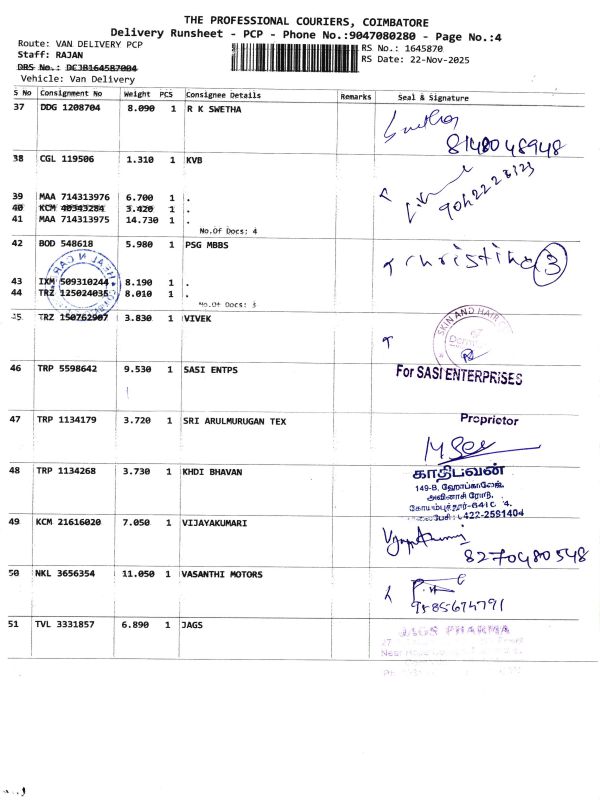 THE PROFESSIONAL COURIERS, COIMBATORE
Delivery Runsheet - PCP - Phone No.:9047080280 - Page No.:4
Route: VAN DELIVERY PCP
RS No.: 1645870
Staff: RAJAN
RS Date: 22-Nov-2025
DRS No.: DCJB164587004
Vehicle: Van Delivery
S No Consignment No Weight PCS Consignee Details Remarks Seal & Signature
37 DDG 1208704 8.090 1 R K SWETHA
Swetha
8148048948
38 CGL 119506 1.310 1 KVB
39 MAA 714313976 6.700 1 .
40 KCM 40343284 3.420 1 .
41 MAA 714313975 14.730 1 .
No.Of Docs: 4
42 BOD 548618 5.980 1 PSG MBBS
Christina 3
43 IXM 509310244 8.190 1 .
44 TRZ 125024035 8.010 1 .
No.Of Docs: 3
45 TRZ 150762907 3.830 1 VIVEK
SKIN AND HAIR
46 TRP 5598642 9.530 1 SASI ENTPS
For SASI ENTERPRISES
47 TRP 1134179 3.720 1 SRI ARULMURUGAN TEX
Proprietor
48 TRP 1134268 3.730 1 KHDI BHAVAN
காதிபவன்
149-B, ஹோப்காலேஜ்,
அவினாசி ரோடு,
0422-2591404
49 KCM 21616020 7.050 1 VIJAYAKUMARI
8270480548
50 NKL 3656354 11.050 1 VASANTHI MOTORS
9585674791
51 TVL 3331857 6.890 1 JAGS